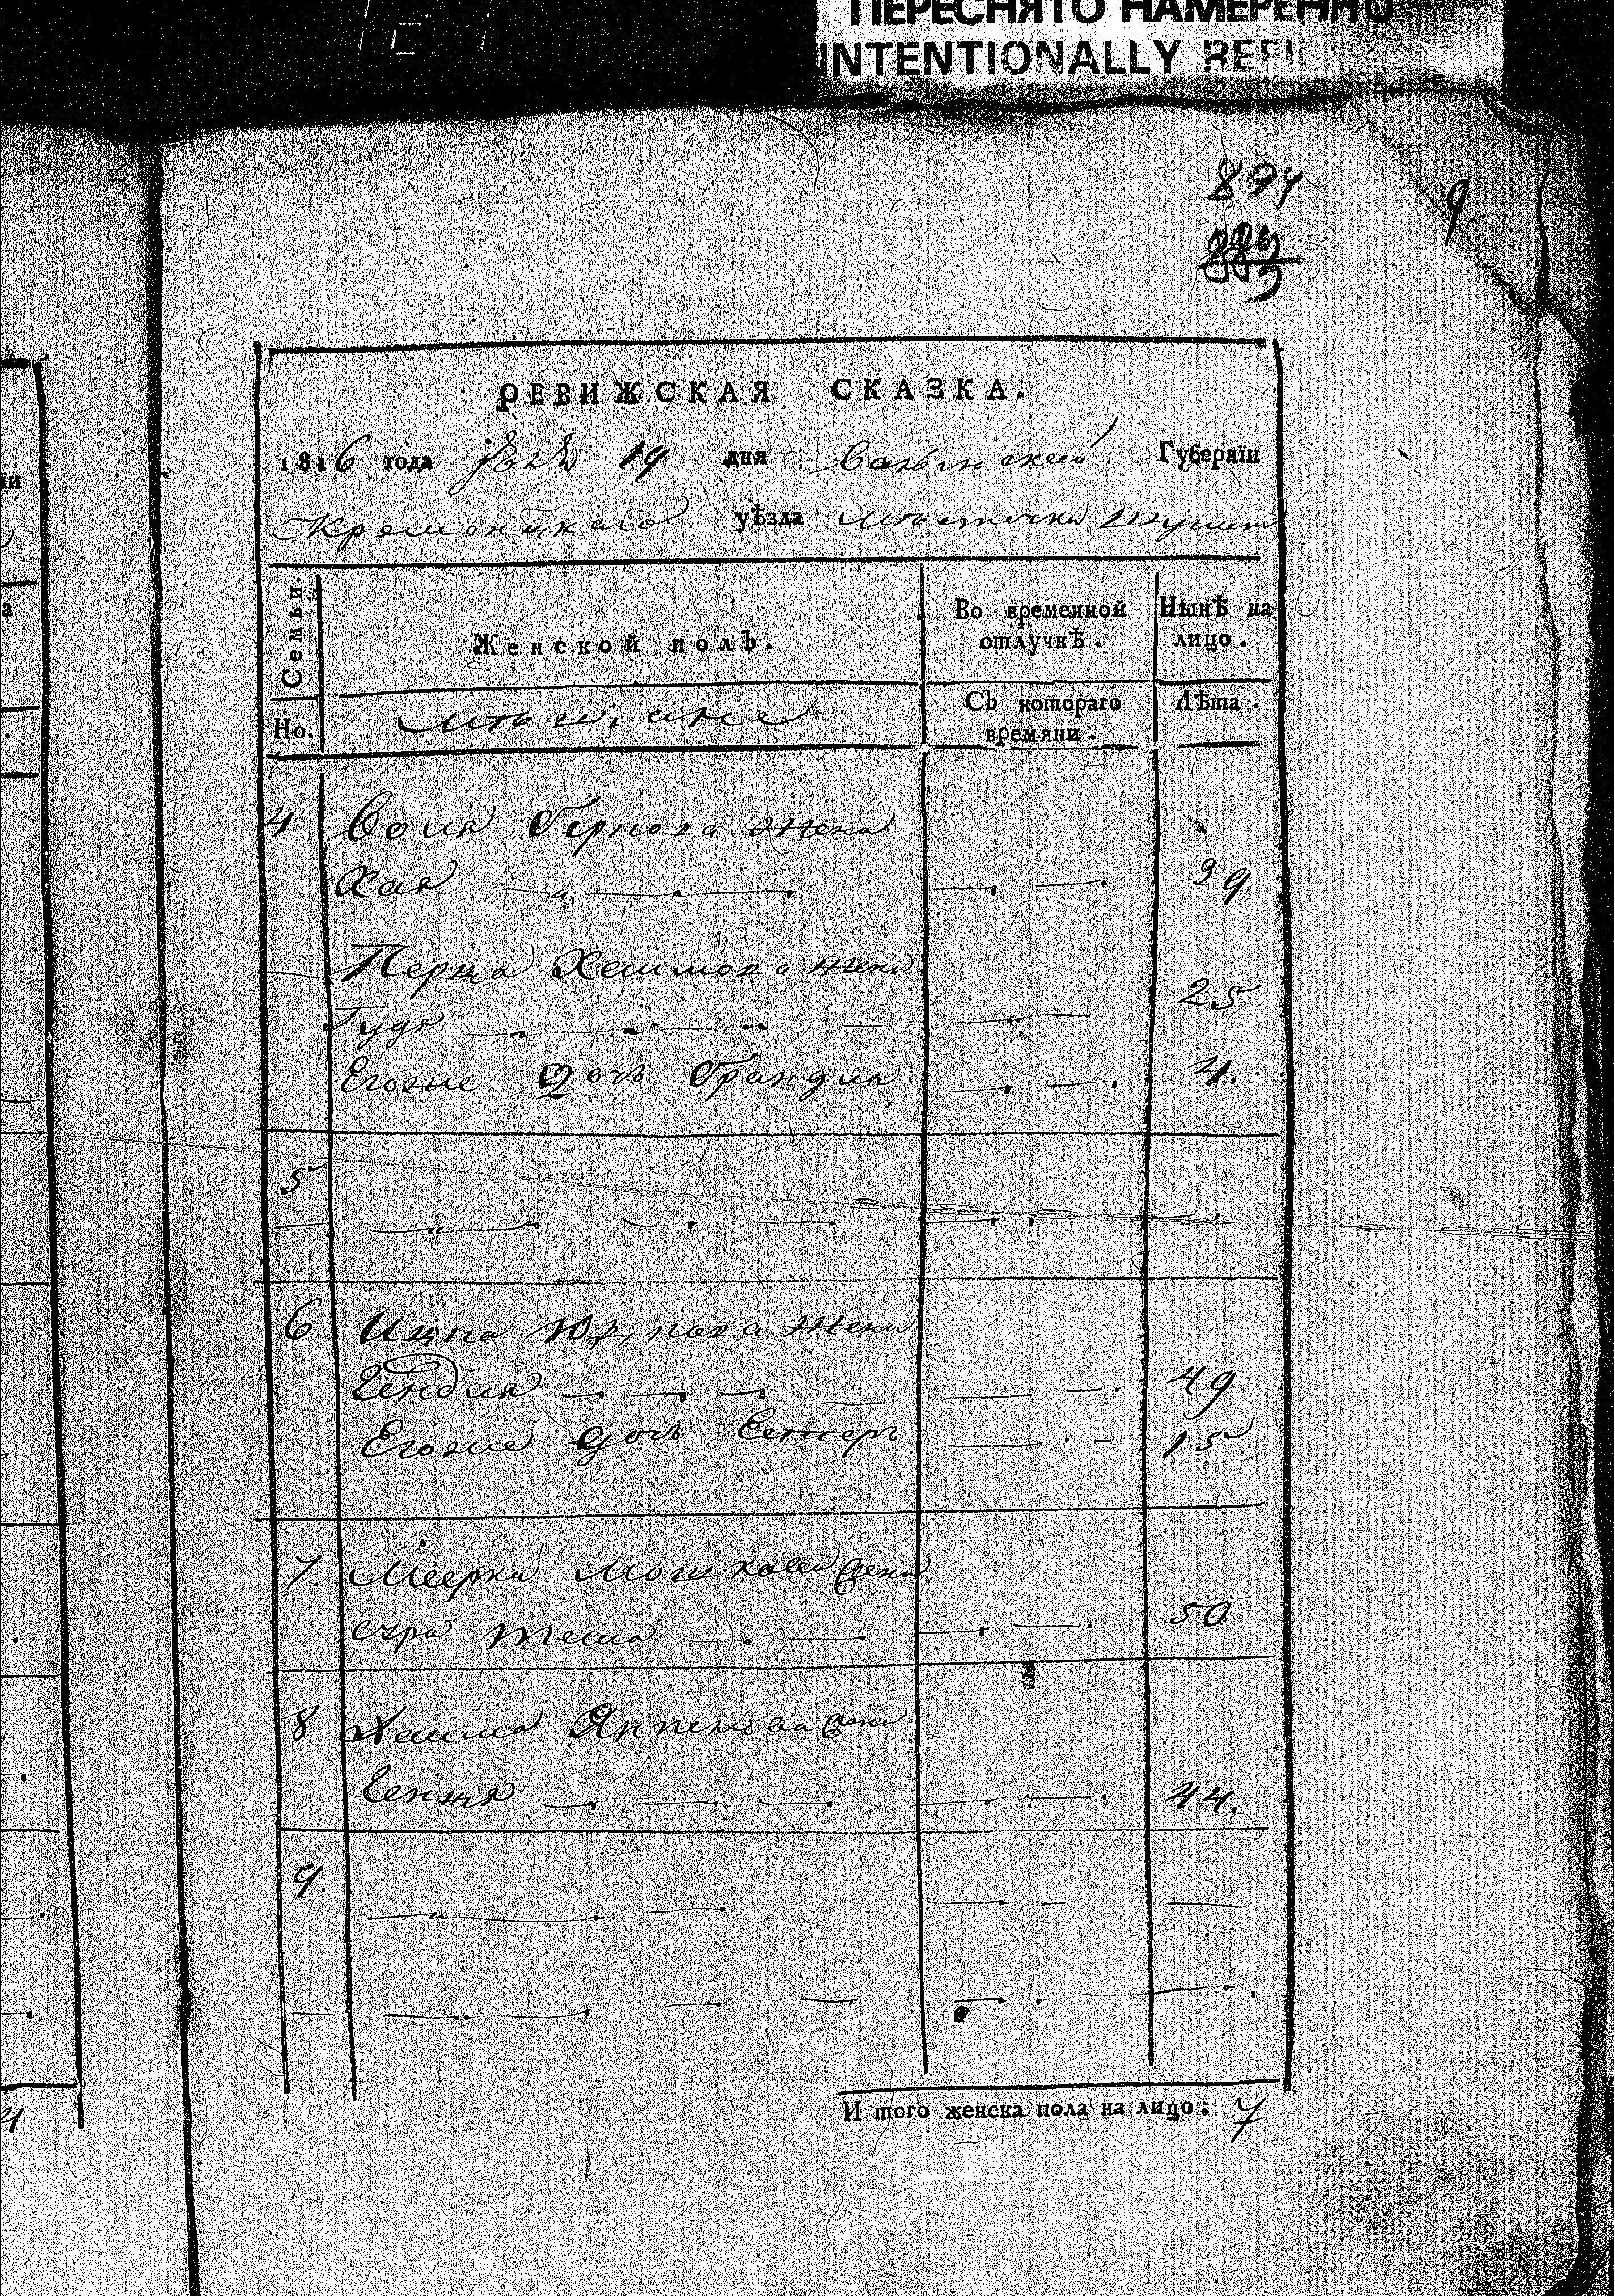 ПЕРЕСНЯТО НАМЕРЕННО
INTENTIONALLY
894
9.
РЕВИЖСКАЯ СКАЗКА.
1816 года 19 дня Волынской Губернїи
Кременецкаго уѣзда мѣстечка
Семьи.
Женской полъ.
Во временной отлучкѣ.
Нынѣ на лицо.
Но.
мѣщане
Съ котораго времяни.
Лѣта.
4 Воля Беркова жена
Хая 39
Перца Хаимова жена
Гудя 25
Егоже дочь Брандля 4.
5
6 Ицка жена
Гендля 49
Егоже дочь Естеръ 15
7. Меерка Мошкова жена
50
8 Хаима жена
Генця 44.
9.
И того женска пола на лицо: 7